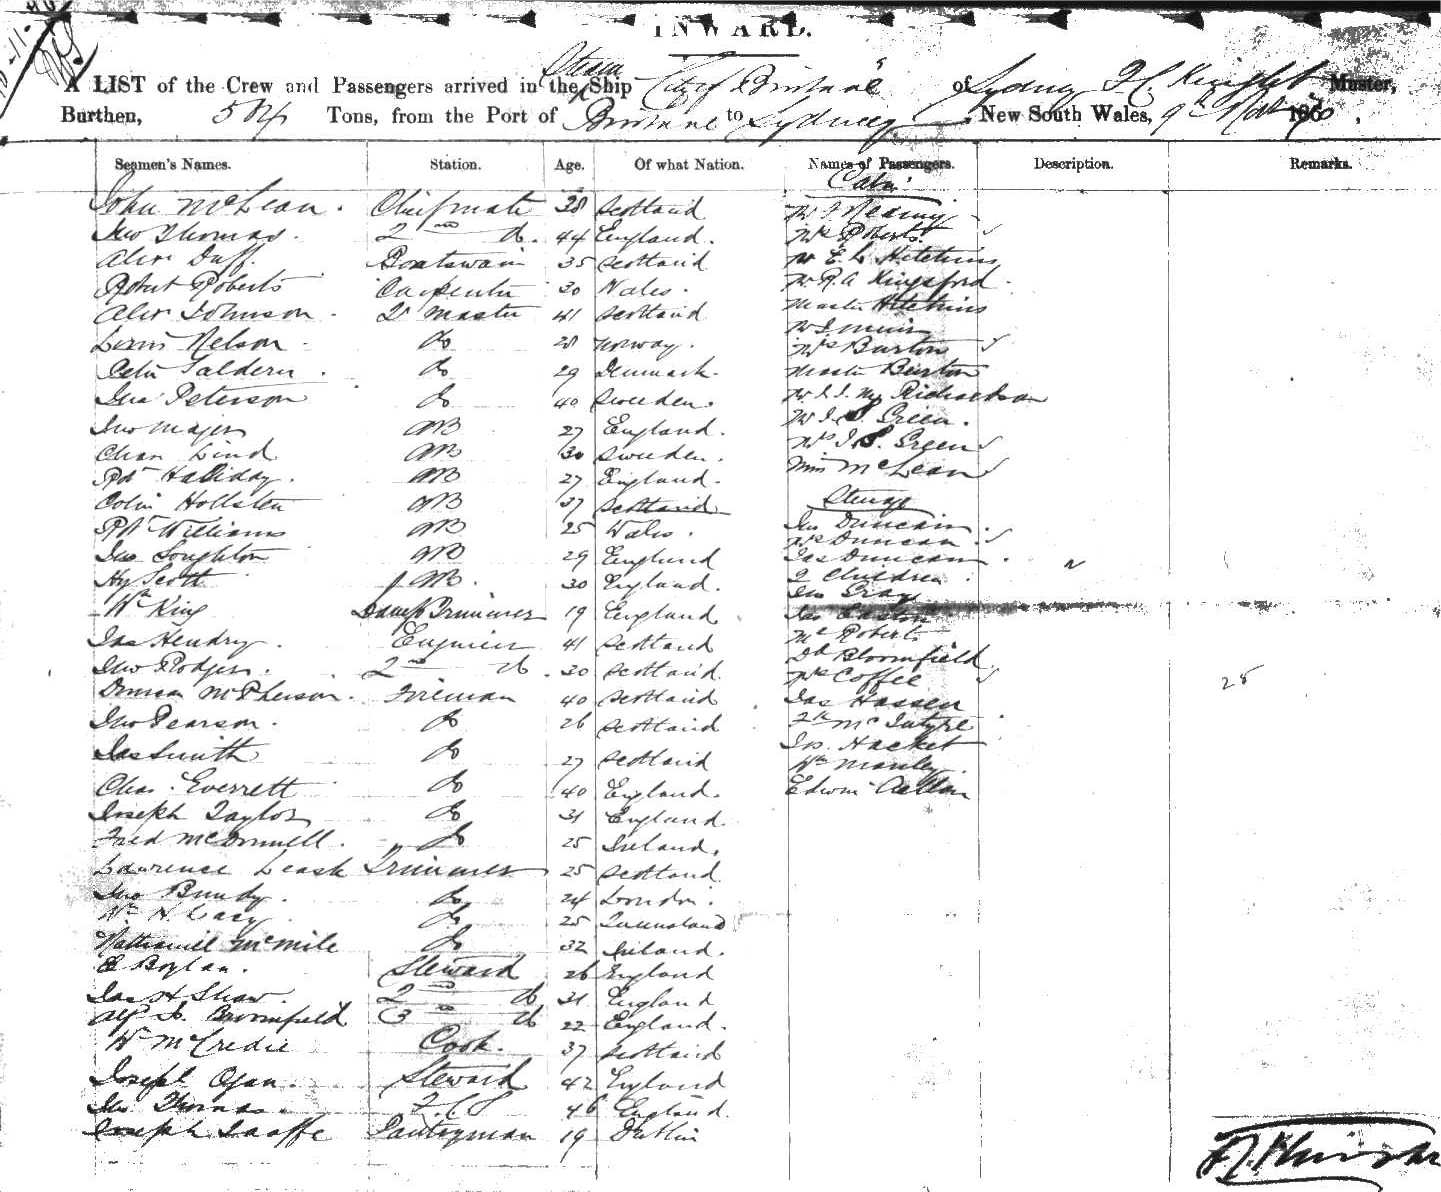 INWARD.
A LIST of the Crew and Passengers arrived in the Steam Ship City of Brisbane of Sydney Knight Master,
Burthen, 504 Tons, from the Port of Brisbane to Sydney, New South Wales, 9th Nov 18
Seamen's Names. Station. Age. Of what Nation. Names of Passengers. Description. Remarks.
Cabin
John McLean. Chief mate 38 Scotland
Jno Thomas. 2nd do. 44 England. Mrs Roberts.
Alexr Duff. Boatswain 35 Scotland Mr E. L. Hitchins
Robert Roberts Carpenter 30 Wales. Mr R. A Kingsford
Alexr Johnson. Qr Master 41 Scotland Master Hitchins
Nelson Do 28 Norway. Mr J. Muir
Mrs Burton
Peter Do 29 Denmark. Master Burton
Peterson Do 40 Sweeden. Richardson
Jno Majer AB 27 England. Mr J. S. Green.
Chas Lind AB 30 Sweeden. Mrs J. S. Green
Rbt Halliday. AB 27 England. Miss McLean
Colin AB 37 Scotland Steerage
Rbt Williams AB 25 Wales. Jno Duncan.
Mrs Duncan
Jno AB 29 England Jas Duncan
Hy Scott AB. 30 England. 2 Children
Jno Gray
Wm King Trimmer 19 England Easton
Jas Hendry. Engineer 41 Scotland Roberts
Jno Rodger. 2nd do. 30 Scotland Bloomfield
Mrs Coffee 25
Duncan McPherson. Fireman 40 Scotland Jas Hassen
Jno Pearson. Do 26 Scotland McIntyre
Jas Smith Do 27 Scotland Hacket
Wm Manley
Chas. Everrett Do 40 England. Edwin
Joseph Taylor Do 31 England.
Fred McDonnell. Do 25 Ireland.
Lawrence Leask Trimmer 25 Scotland
Jno Bundy. Do 24 London.
Wm H. Do 25 Queensland
Nathaniel Do 32 Ireland.
E Boylan. Steward 26 England
Jas H Shaw. 2nd do 31 England
Alf Broomfield 3rd do 22 England.
Wm McCredie Cook. 37 Scotland
Joseph Steward 42 England
Jno Thomas. 46 England.
Joseph Taaffe Pantryman 19 Dublin